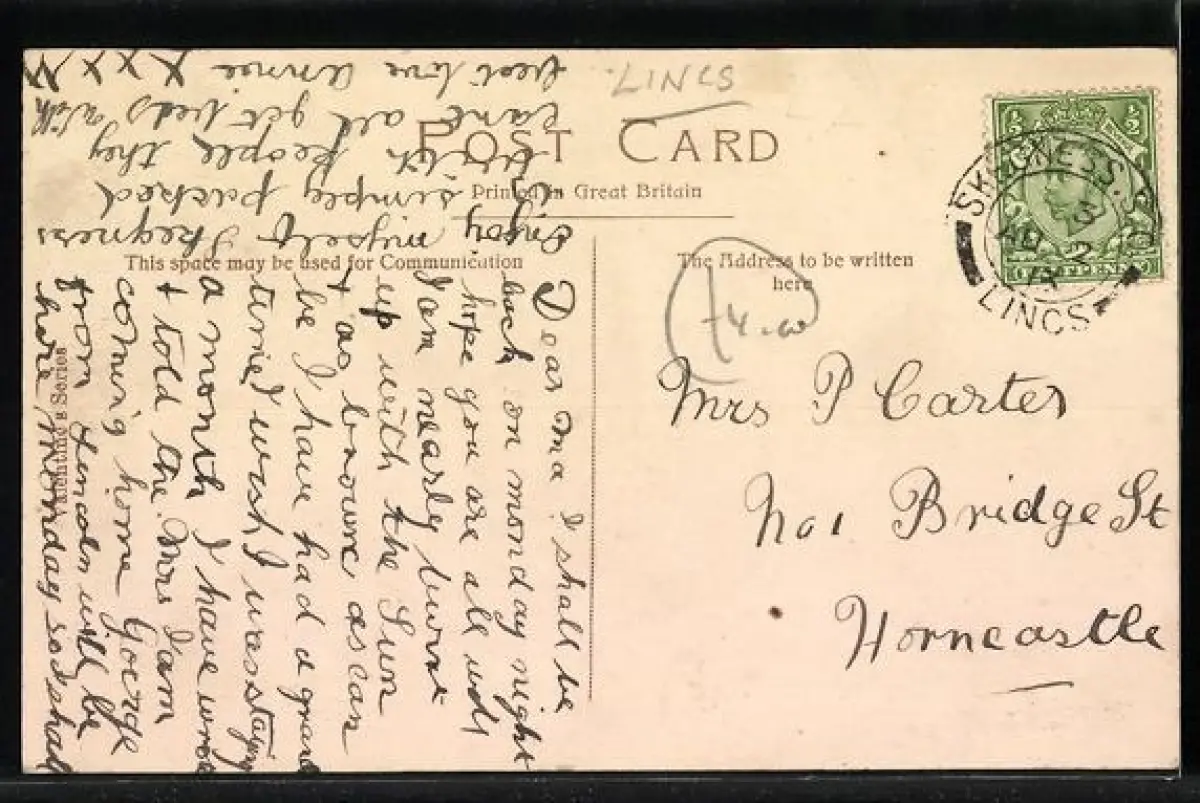 LINCS
POST CARD
Printed in Great Britain
This space may be used for Communication
The Address to be written
here
SKEGNESS. S.O
3
AU 2
LINCS
½ ½
Mrs P Carter
No 1 Bridge St
Horncastle
Series
Dear Ma I shall be
back on monday night
hope you are all well
I am nearly burnt
up with the Sun
& as brown as can
be I have had a grand
time I wish I was staying
a month I have wrote
& told the Mrs I am
coming home George
from Lincoln will be
here Monday so I shall
enjoy myself Skegness
is simply packed
with people, they
cant all get beds with
best love Annie X X X X